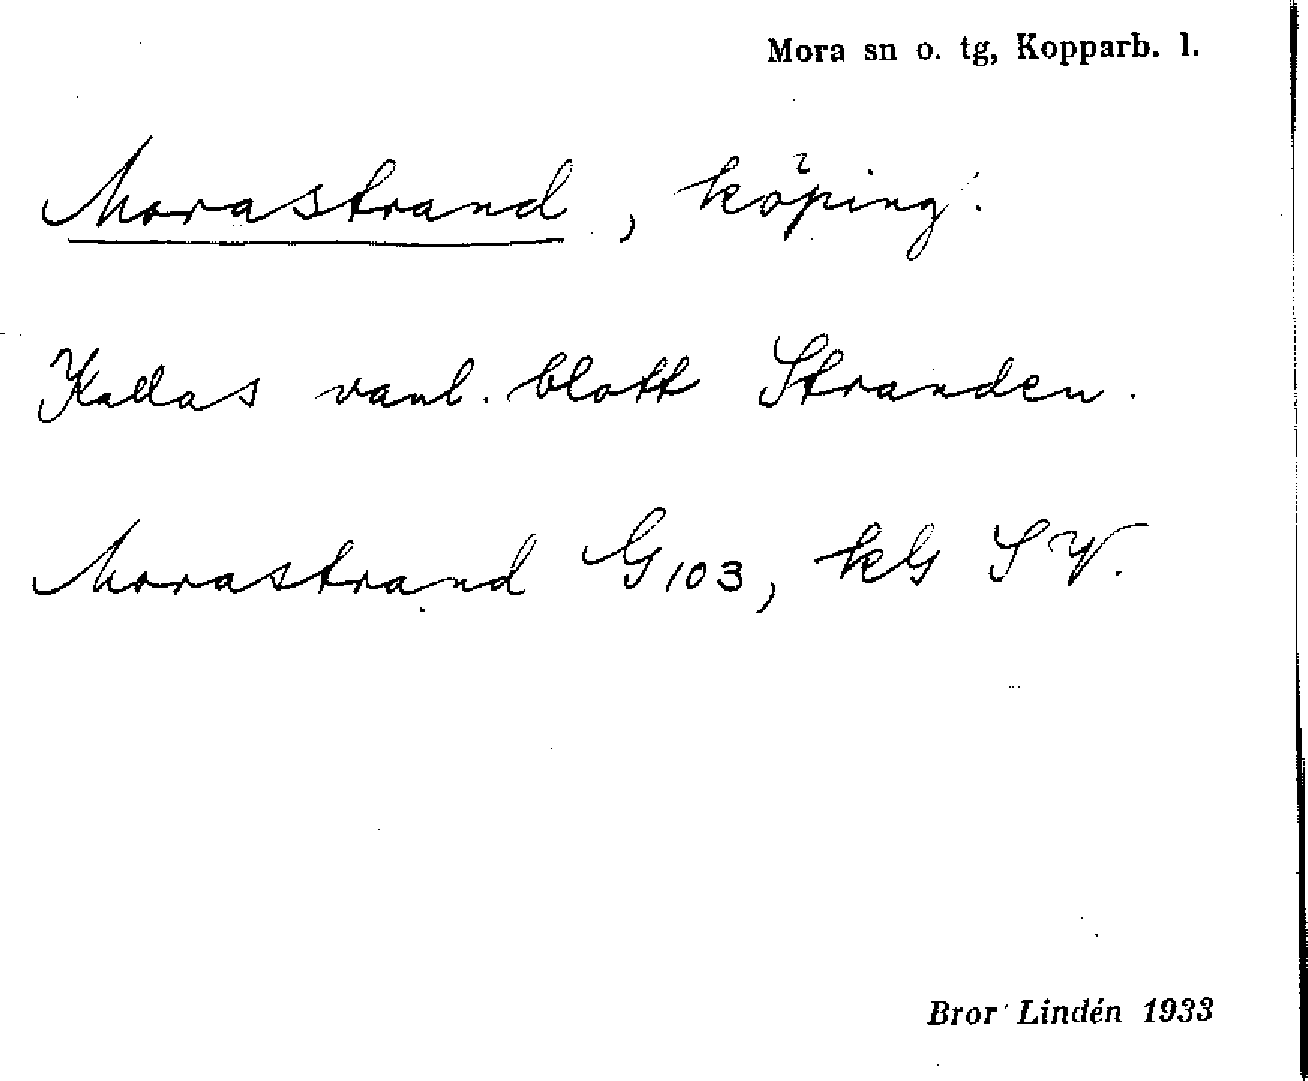 Mora sn o. tg, Kopparb. l.
Morastrand, köping:
Kallas vanl. blott Stranden.
Morastrand G103, kG SV.
Bror Lindén 1933